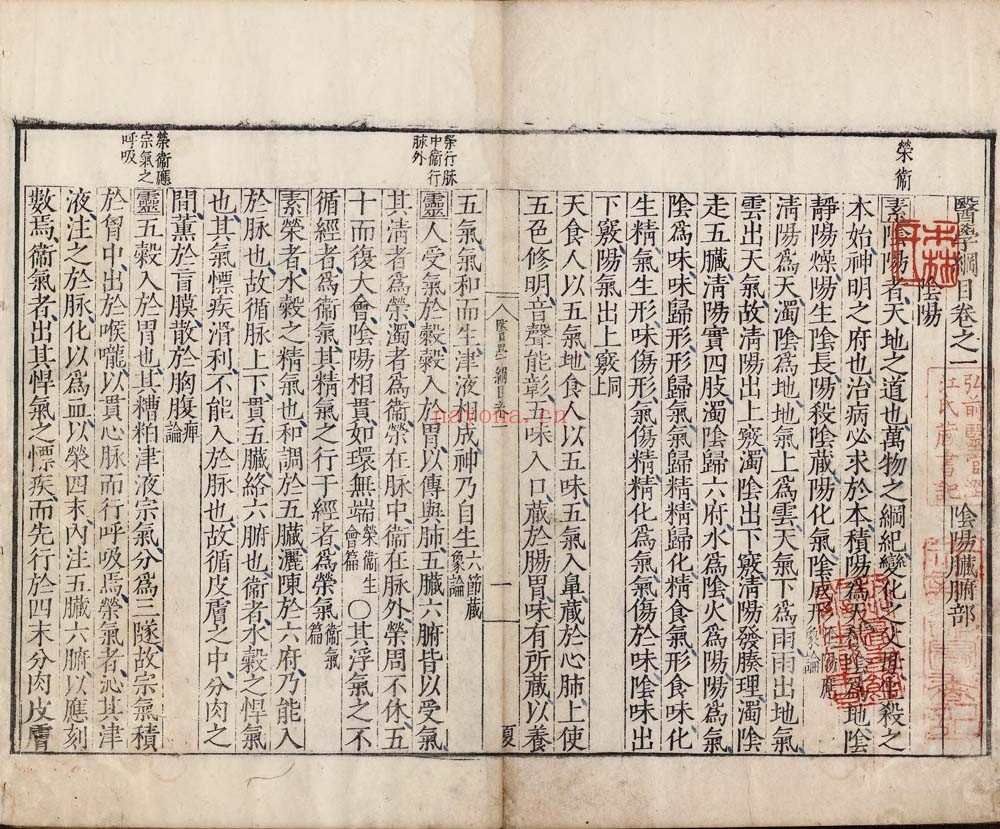 醫學綱目卷之一　陰陽臟腑部
陰陽
榮衛
素陰陽者天地之道也萬物之綱紀變化之父母生殺之
本始神明之府也治病必求於本積陽為天積陰為地陰
靜陽燥陽生陰長陽殺陰藏陽化氣陰成形
清陽為天濁陰為地地氣上為雲天氣下為雨雨出地氣
雲出天氣故清陽出上竅濁陰出下竅清陽發腠理濁陰
走五臟清陽實四肢濁陰歸六府水為陰火為陽陽為氣
陰為味味歸形形歸氣氣歸精精歸化精食氣形食味化
生精氣生形味傷形氣傷精精化為氣氣傷於味陰味出
下竅陽氣出上竅上同
天食人以五氣地食人以五味五氣入鼻藏於心肺上使
五色修明音聲能彰五味入口藏於腸胃味有所藏以養
醫學綱目卷一
一
夏
五氣氣和而生津液相成神乃自生六節藏象論
榮行脉中衛行脉外
靈人受氣於穀穀入於胃以傳與肺五臟六腑皆以受氣
其清者為榮濁者為衛榮在脉中衛在脉外榮周不休五
十而復大會陰陽相貫如環無端榮衛生會篇○其浮氣之不
循經者為衛氣其精氣之行于經者為榮氣衛氣篇
素榮者水穀之精氣也和調於五臟灑陳於六府乃能入
於脉也故循脉上下貫五臟絡六腑也衛者水穀之悍氣
也其氣慓疾滑利不能入於脉也故循皮膚之中分肉之
間薰於肓膜散於胸腹痺論
榮衛應宗氣之呼吸
靈五穀入於胃也其糟粕津液宗氣分為三隧故宗氣積
於胷中出於喉嚨以貫心脉而行呼吸焉榮氣者沁其津
液注之於脉化以為血以榮四末內注五臟六腑以應刻
數焉衛氣者出其悍氣之慓疾而先行於四末分肉皮膚
弘前醫官澀
江氏藏書記
nayona.cn